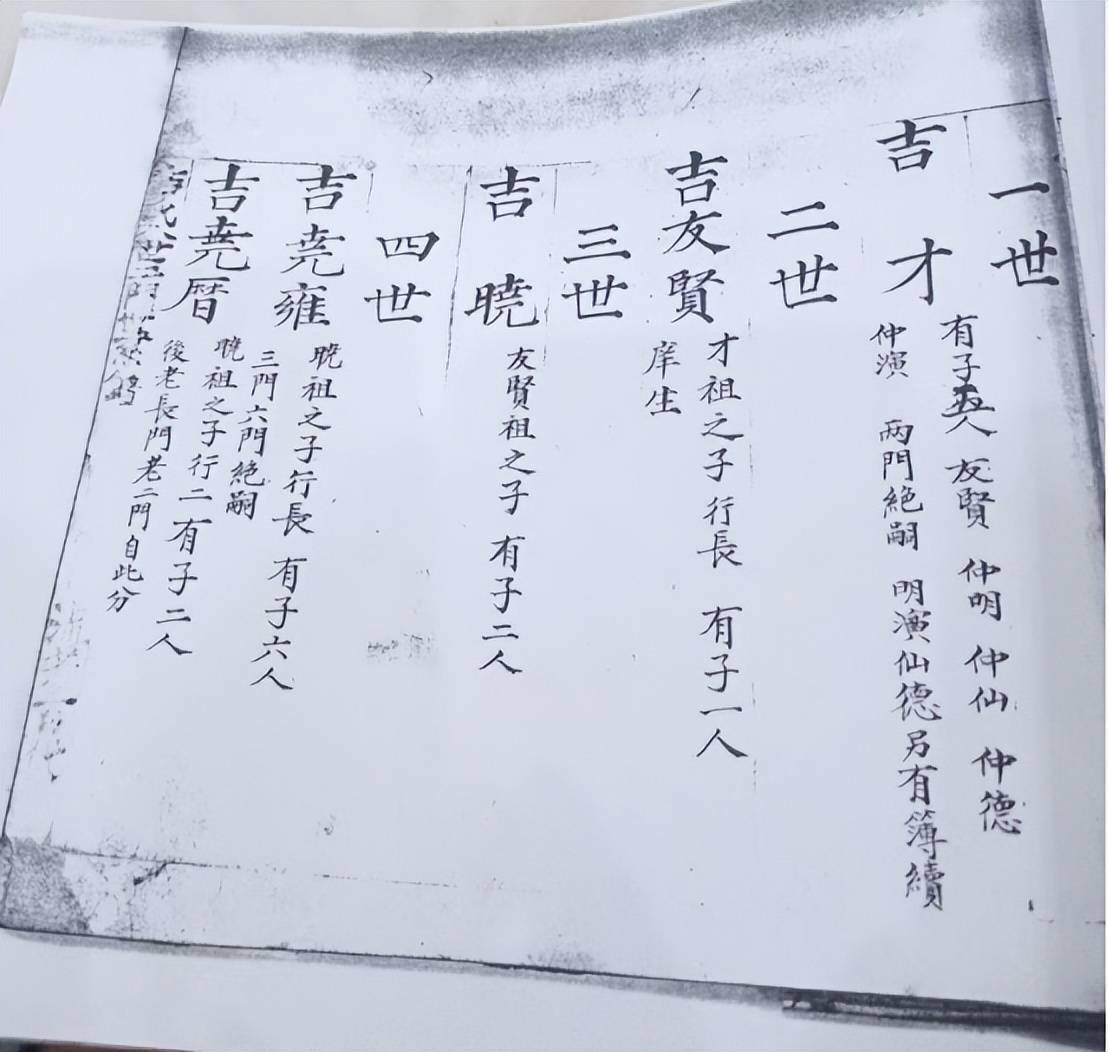 一世
吉才
有子五人 友賢 仲明 仲仙 仲德
仲演 两門絶嗣 明演仙德另有簿續
二世
吉友賢
才祖之子行長 有子一人
庠生
三世
吉曉
友賢祖之子 有子二人
四世
吉尭雍
曉祖之子行長 有子六人
三門六門絶嗣
吉尭曆
曉祖之子行二 有子二人
後老長門老二門自此分